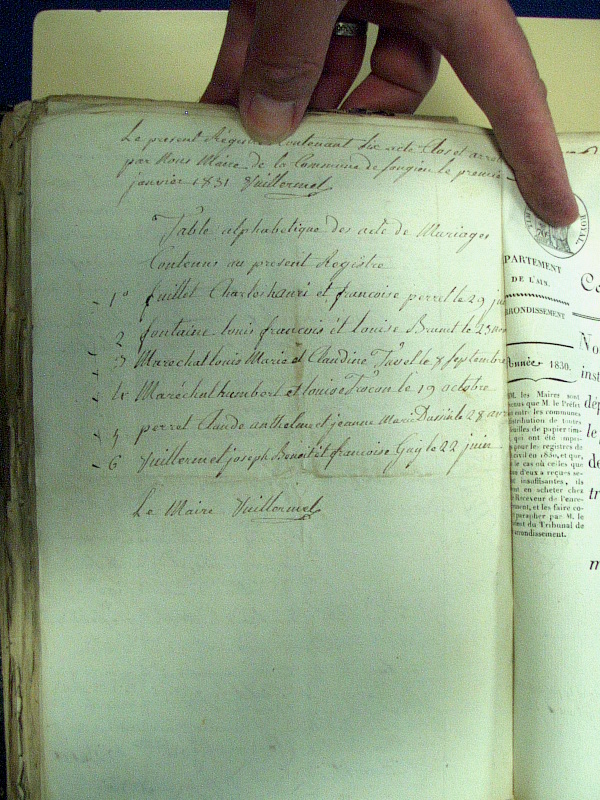 Le present Régistre Contenant Six acte Clos et arrêté
par Nous Maire de la Commune de songieu le premier
janvier 1831 Vuillermet
Table alphabetique des acte de Mariages
Contenus au present Registre
1º fuillet Charles hanri et francoise perret le 29 jui
2 fontaine louis francois et louise Brunet le 23 nov
3 Marechal louis Marie et Claudine le 8 septembre
4 Maréchal humbert et louise le 19 octobre
5 perret Claude anthelme et jeanne Marie le 28 avr
6 Vuillermet joseph Benoit et francoise Guy le 22 juin
Le Maire Vuillermet
ROYAL
PARTEMENT
DE L'AIN.
RRONDISSEMENT
Année 1830.
MM. les Maires sont
enus que M. le Préfet
it entre les communes
distribution de toutes
euilles de papier tim-
qui ont été impri-
pour les registres de
civil en 1830, et que,
le cas où celles que
d'eux a reçues se-
nt insuffisantes, ils
ont en acheter chez
Receveur de l'enre-
ment, et les faire co-
parapher par M. le
dent du Tribunal de
arrondissement.
Ce
No
inst
dép
le
de
tr
m